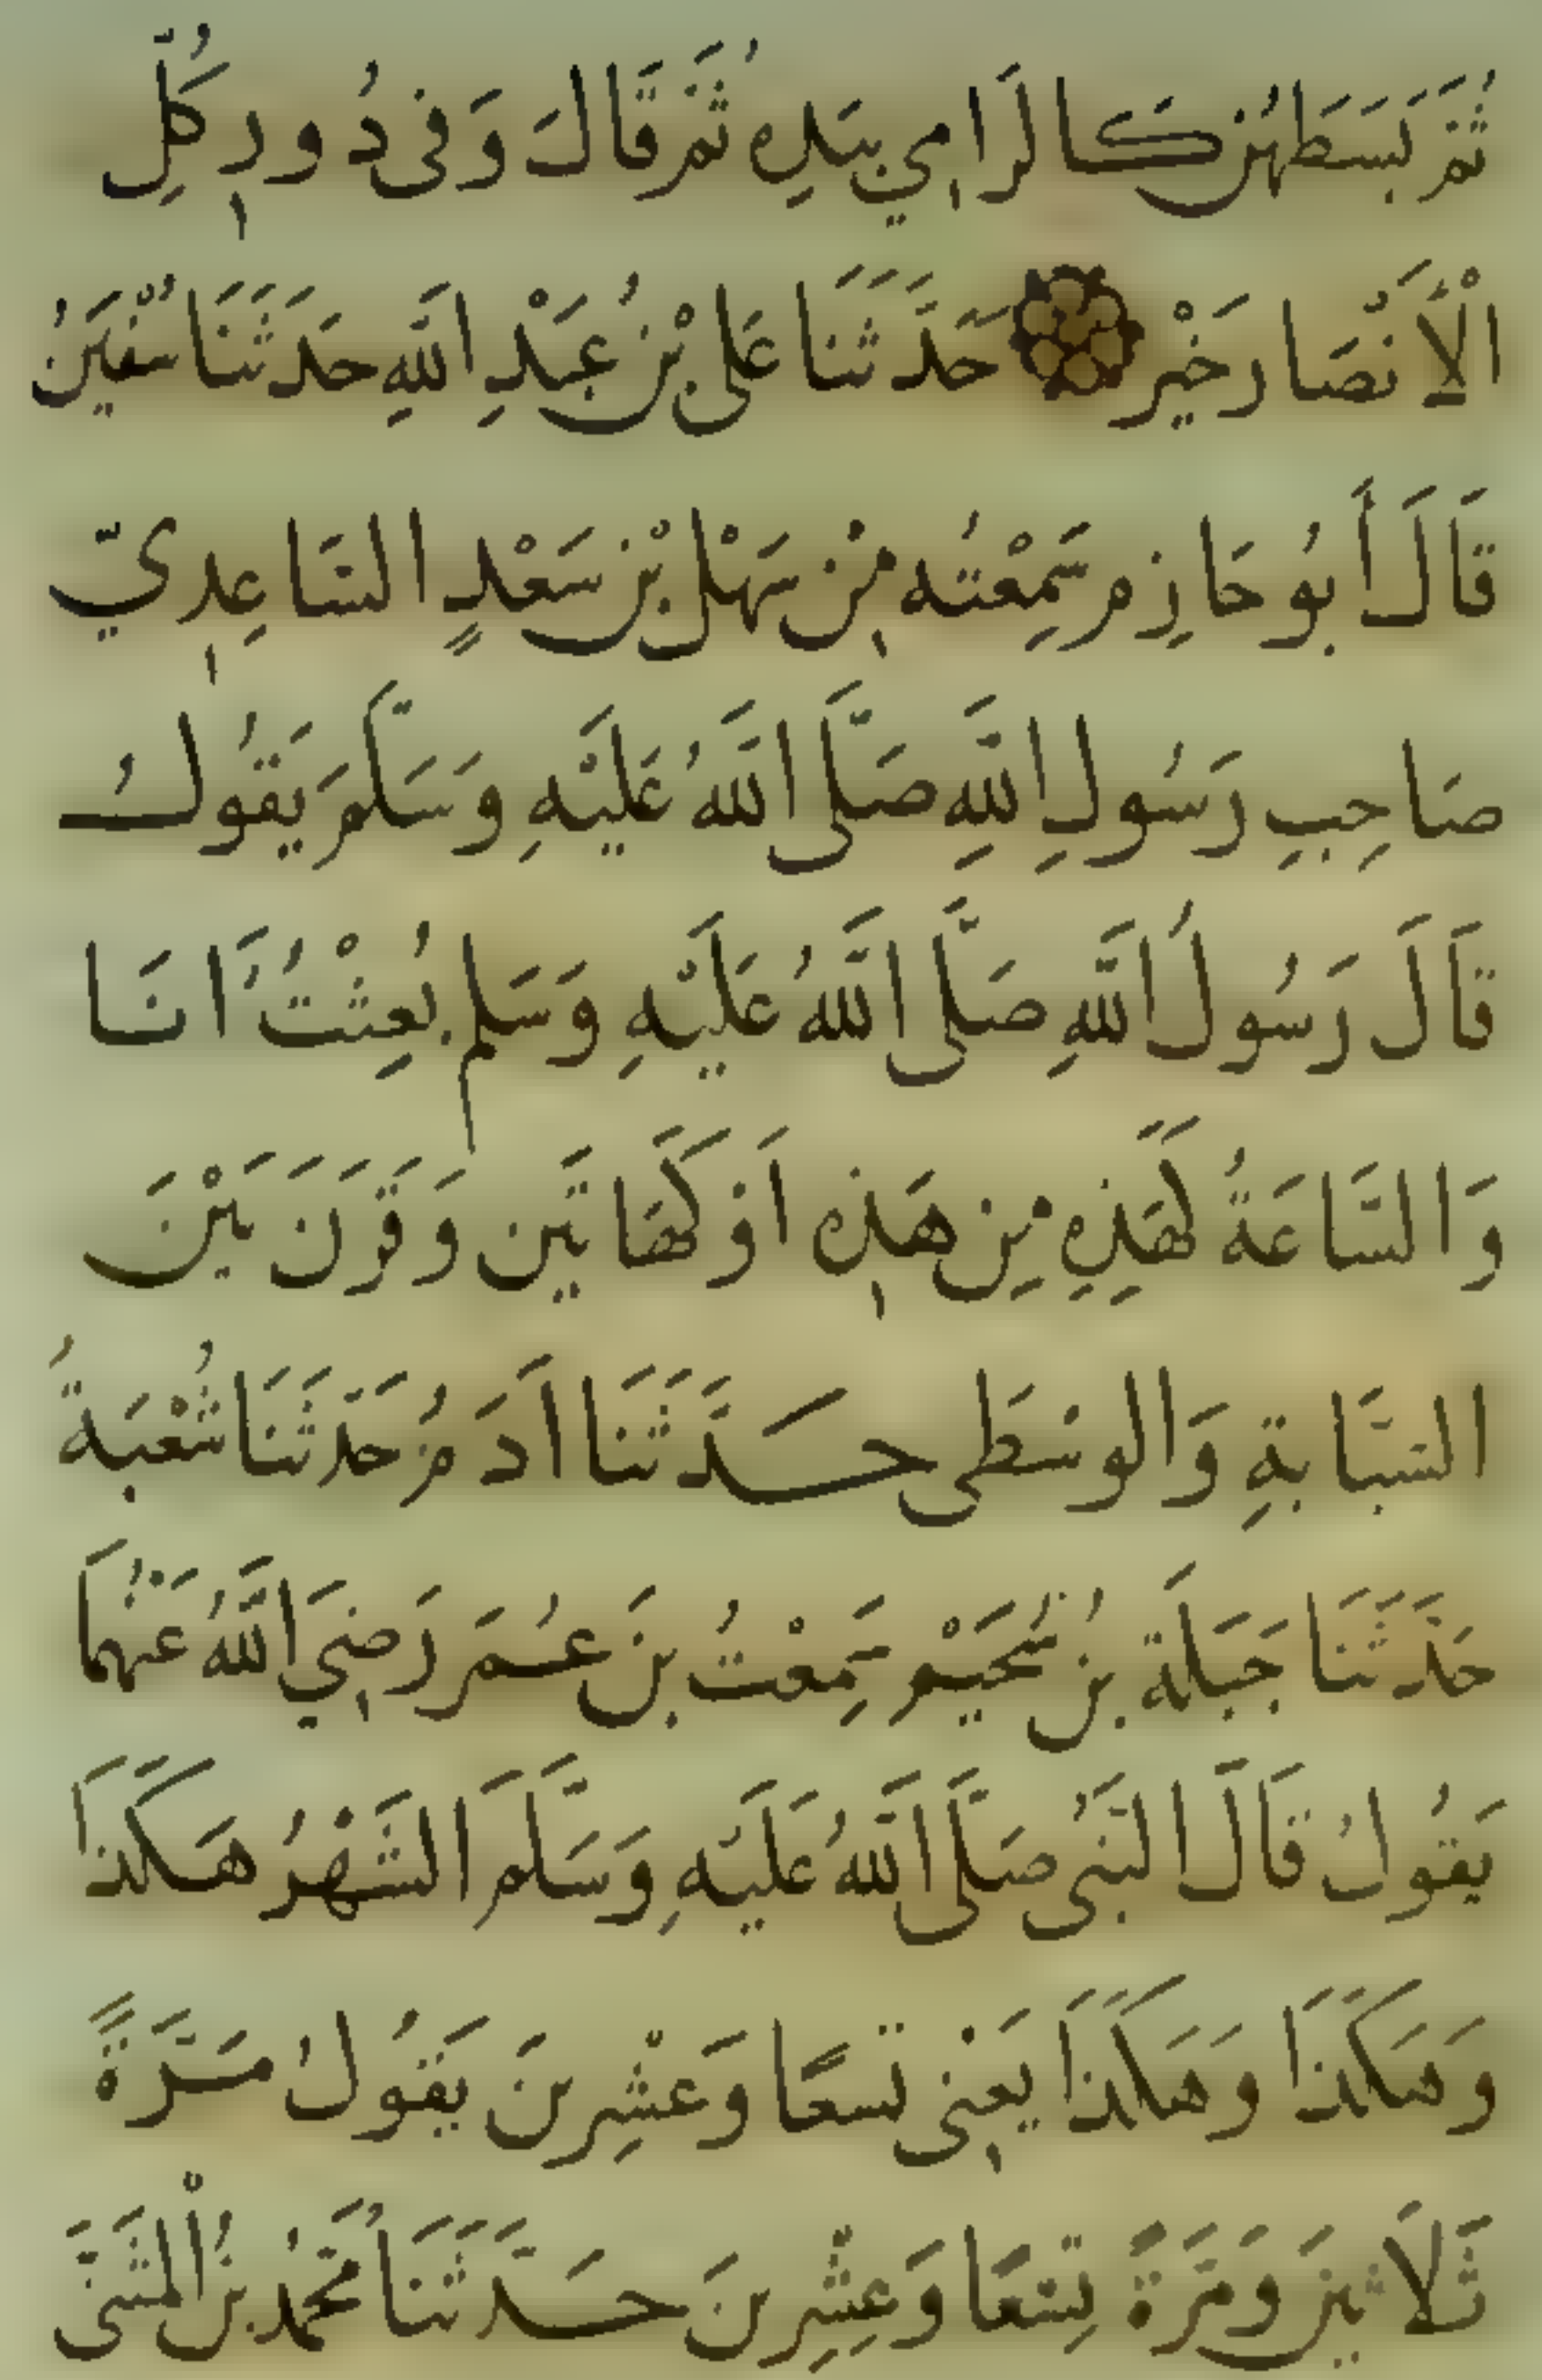 ثُمَّ بَسَطَهُنَّ كَالرَّامِي بِيَدِهِ ثُمَّ قَالَ وَفِى دُورِ كُلِّ
الْأَنْصَارِ خَيْرٌ حَدَّثَنَا عَلِىُّ بْنُ عَبْدِ اللَّهِ حَدَّثَنَا سُفْيَنُ
قَالَ أَبُو حَازِمٍ سَمِعْتُه مِنْ سَهْلِ بْنِ سَعْدٍ السَّاعِدِيِّ
صَاحِبِ رَسُولِ اللَّهِ صَلَّى اللَّهُ عَلَيْهِ وَسَلَّمَ يَقُولُ
قَالَ رَسُولُ اللَّهِ صَلَّى اللَّهُ عَلَيْهِ وَسَلم بُعِثْتُ أَنَا
وَالسَّاعَةُ كَهَذِهِ مِنْ هَذِهِ اَوْ كَهَاتَيْنِ وَقَرَنَ بَيْنَ
السَّبَّابَةِ وَالْوسْطَى حَدَّثَنَا اَدَمُ حَدَّثَنَا شُعْبَةُ
حَدَّثَنَا جَبَلَةُ بْنُ سُحَيْمٍ سَمِعْتُ بْنَ عُمَرَ رَضِيَ اللَّهُ عَنْهُمَا
يَقُولُ قَالَ النَّبِىُّ صَلَّى اللَّهُ عَلَيْهِ وَسَلَّمَ الشَّهْرُ هَكَذَا
وَهَكَذَا وَهَكَذَا يَعْنِى تسعًا وَعشْرِينَ يَقُولُ مَرَّةً
ثَلَاثِينَ وَمَرَّةً تِسْعًا وَعِشْرِينَ حَدَّثَنَا مُحَمَّدُ بْنُ الْمُثَنَّى